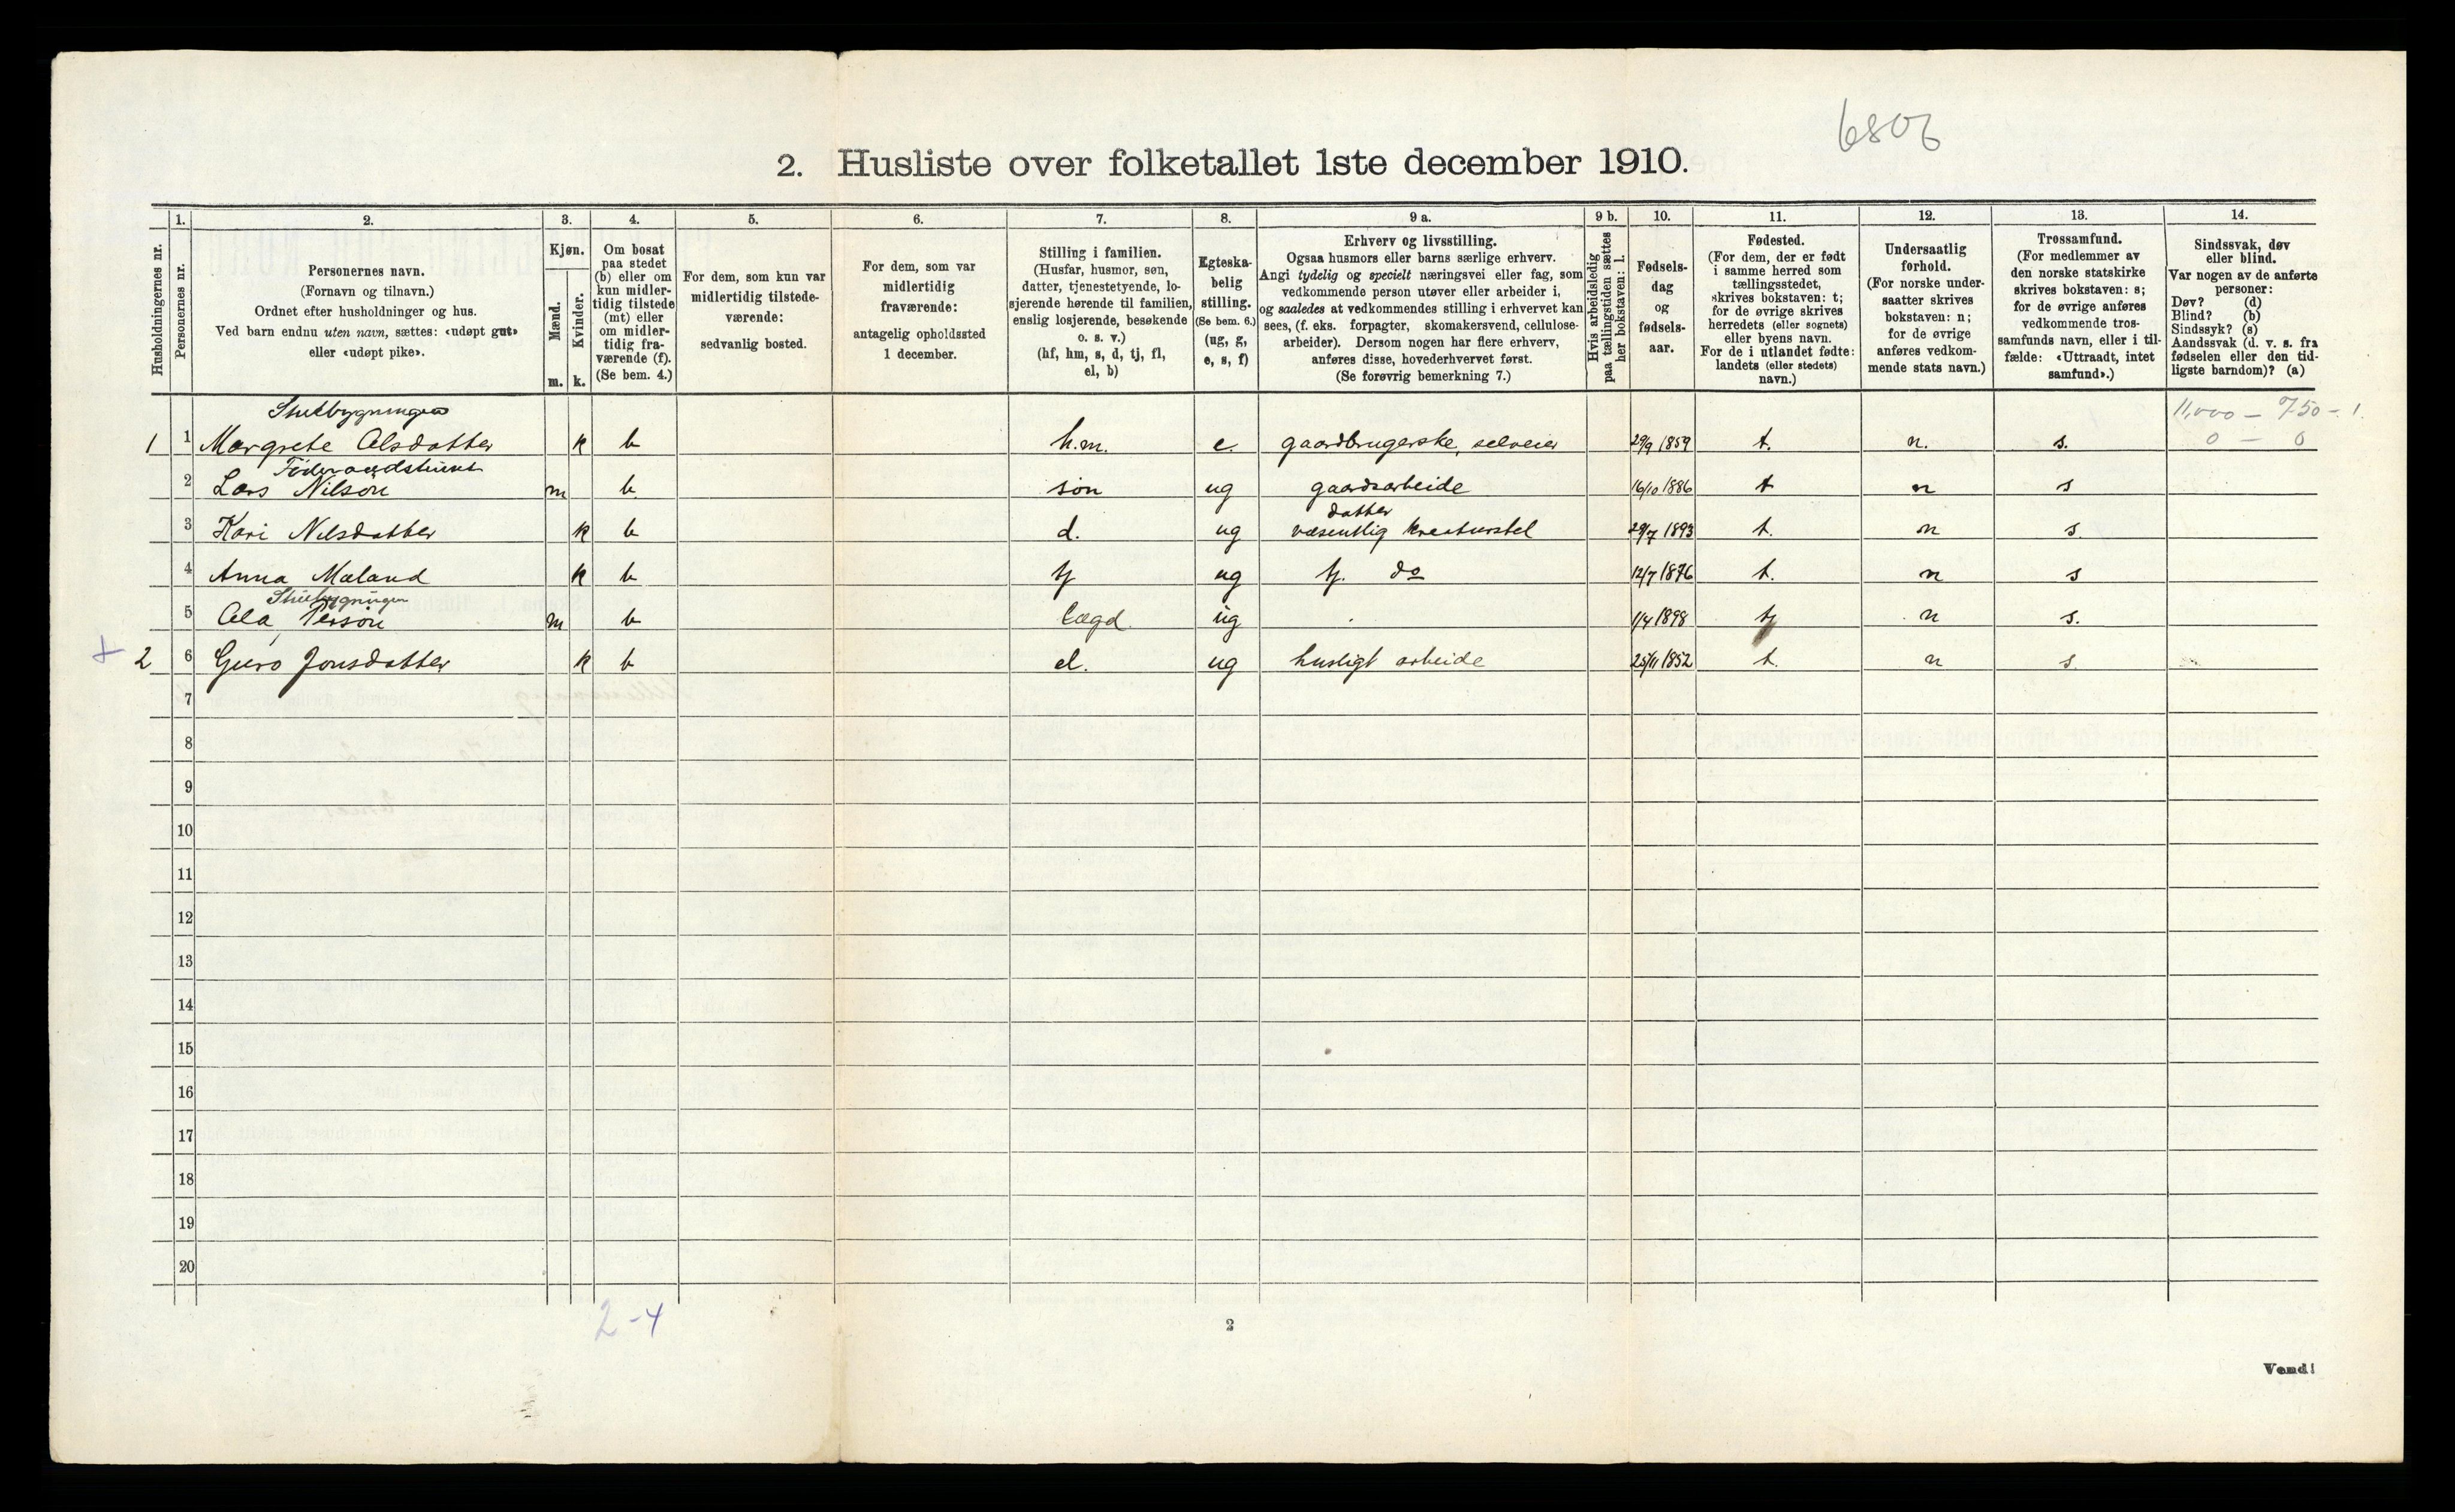 6806
2. Husliste over folketallet 1ste december 1910.
Husholdningernes nr.
1.
Personernes nr.
2.
Personernes navn.
(Fornavn og tilnavn.)
Ordnet efter husholdninger og hus.
Ved barn endnu uten navn, sættes: «udøpt gut»
eller «udøpt pike».
3.
Kjøn.
Mænd.
Kvinder.
m. k.
4.
Om bosat
paa stedet
(b) eller om
kun midler-
tidig tilstede
(mt) eller
om midler-
tidig fra-
værende (f).
(Se bem. 4.)
5.
For dem, som kun var
midlertidig tilstede-
værende:
sedvanlig bosted.
6.
For dem, som var
midlertidig
fraværende:
antagelig opholdssted
1 december.
7.
Stilling i familien.
(Husfar, husmor, søn,
datter, tjenestetyende, lo-
sjerende hørende til familien,
enslig losjerende, besøkende
o. s. v.)
(hf, hm, s, d, tj, fl,
el, b)
8.
Egteska-
belig
stilling.
(Se bem. 6.)
(ug, g,
e, s, f)
9 a.
Erhverv og livsstilling.
Ogsaa husmors eller barns særlige erhverv.
Angi tydelig og specielt næringsvei eller fag, som
vedkommende person utøver eller arbeider i,
og saaledes at vedkommendes stilling i erhvervet kan
sees, (f. eks. forpagter, skomakersvend, cellulose-
arbeider). Dersom nogen har flere erhverv,
anføres disse, hovederhvervet først.
(Se forøvrig bemerkning 7.)
9 b.
Hvis arbeidsledig
paa tællingstiden sættes
her bokstaven: l.
10.
Fødsels-
dag
og
fødsels-
aar.
11.
Fødested.
(For dem, der er født
i samme herred som
tællingsstedet,
skrives bokstaven: t;
for de øvrige skrives
herredets (eller sognets)
eller byens navn.
For de i utlandet fødte:
landets (eller stedets)
navn.)
12.
Undersaatlig
forhold.
(For norske under-
saatter skrives
bokstaven: n;
for de øvrige
anføres vedkom-
mende stats navn.)
13.
Trossamfund.
(For medlemmer av
den norske statskirke
skrives bokstaven: s;
for de øvrige anføres
vedkommende tros-
samfunds navn, eller i til-
fælde: «Uttraadt, intet
samfund».)
14.
Sindssvak, døv
eller blind.
Var nogen av de anførte
personer:
Døv? (d)
Blind? (b)
Sindssyk? (s)
Aandssvak (d. v. s. fra
fødselen eller den tid-
ligste barndom)? (a)
Stuebygningen 11,000 – 750 – 1.
1 1 Margrete Olsdatter k b h.m. e. gaardbrugerske, selveier 29/9 1859 t. n. s. 0 – 0
Föderaadstuen
2 Lars Nilsön m b sön ug gaardsarbeide 16/10 1886 t n s
datter
3 Kari Nilsdatter k b d. ug væsentlig kreaturstel 29/7 1893 t. n s.
4 Anna Mæland k b tj ug tj. do 12/7 1876 t. n s
Stuebygningen
5 Ola Persön m b lægd ug 1/4 1898 n s.
+ 2 6 Guro Jonsdatter k b el. ug husligt arbeide 25/11 1852 t. n s.
7
8
9
10
11
12
13
14
15
16
17
18
19
20
2-4
2
Vend!